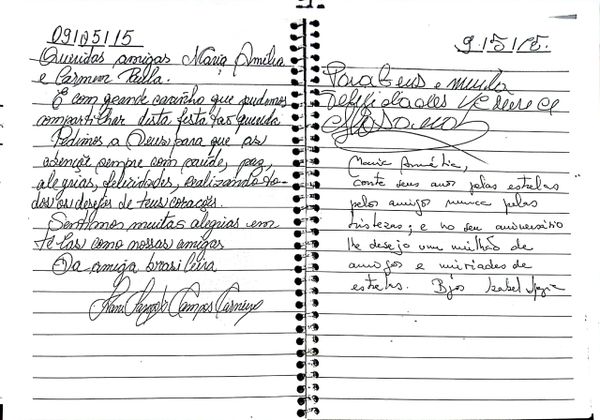 09/05/15
Queridas amigas Maria Amélia
e Carmem Paula.
É com grande carinho que pudemos
compartilhar desta festa tão querida
Pedimos a Deus para que as
abençoe sempre com saúde, paz,
alegrias, felicidades, realizando to-
dos os desejos de teus corações.
Sentimos muitas alegrias em
tê-las como nossas amigas
Da amiga brasileira
Campos Carneiro
9/5/15.
Parabéns e muita
felicidades
Maria Amélia,
conte seus anos pelas estrelas
pelos amigos nunca pelas
tristezas; e no seu aniversário
lhe desejo um milhão de
amigos e miríades de
estrelas. Bjos Izabel